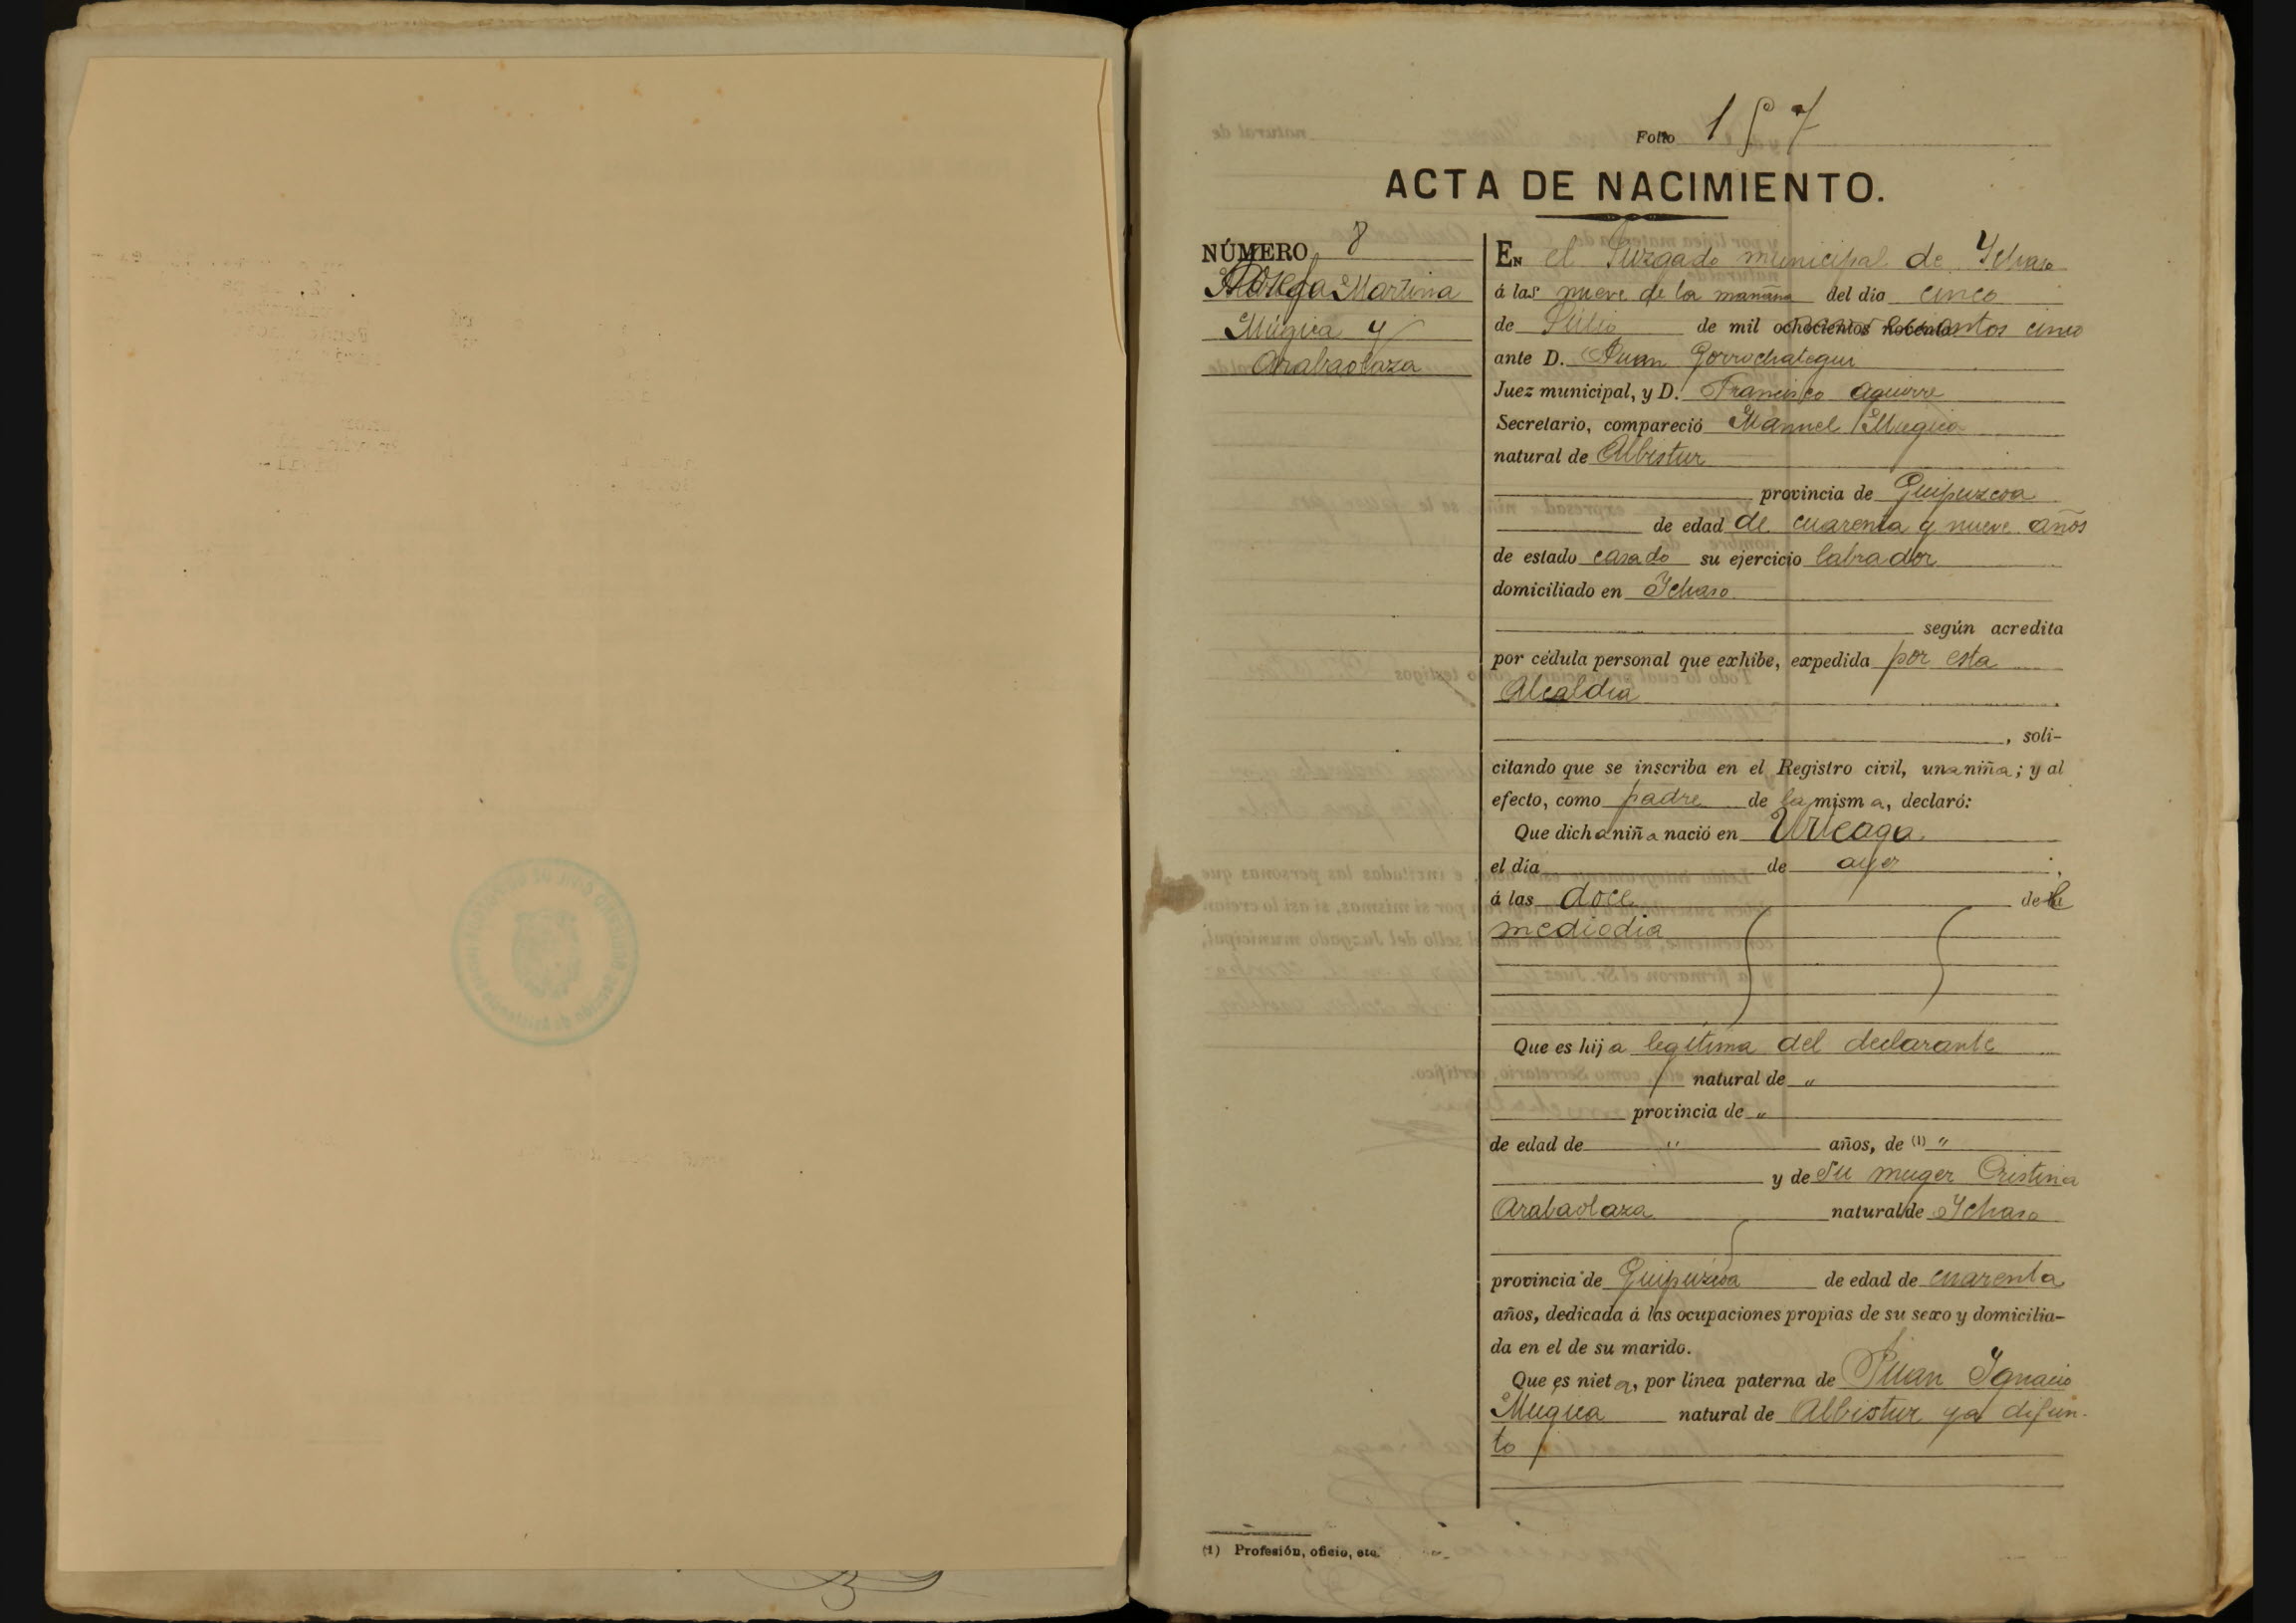 Folio 157
ACTA DE NACIMIENTO.
NÚMERO 8
Josefa Martina
Múgica y
Arabaolaza
En el Juzgado municipal de Ychaso
á las nueve de la mañana del dia cinco
de Julio de mil ochocientos noventa cinco
ante D. Juan Gorrochategui
Juez municipal, y D. Francisco Aguirre
Secretario, compareció Manuel Mugica
natural de Albistur
provincia de Guipuzcoa
de edad de cuarenta y nueve años
de estado casado su ejercicio labrador
domiciliado en Ychaso
según acredita
por cédula personal que exhibe, expedida por esta
Alcaldia
, soli-
citando que se inscriba en el Registro civil, una niña; y al
efecto, como padre de la misma, declaró:
Que dicha niña nació en
el día de ayer
á las doce del
mediodia
Que es hija legitima del declarante
natural de "
provincia de "
de edad de " años, de (1) "
y de su muger Cristina
Arabaolaza natural de Ychaso
provincia de Guipuzcoa de edad de cuarenta
años, dedicada á las ocupaciones propias de su sexo y domicilia-
da en el de su marido.
Que es nieta, por línea paterna de Juan Ygnacio
Mugica natural de Albistur ya difun-
to
(1) Profesión, oficio, etc.